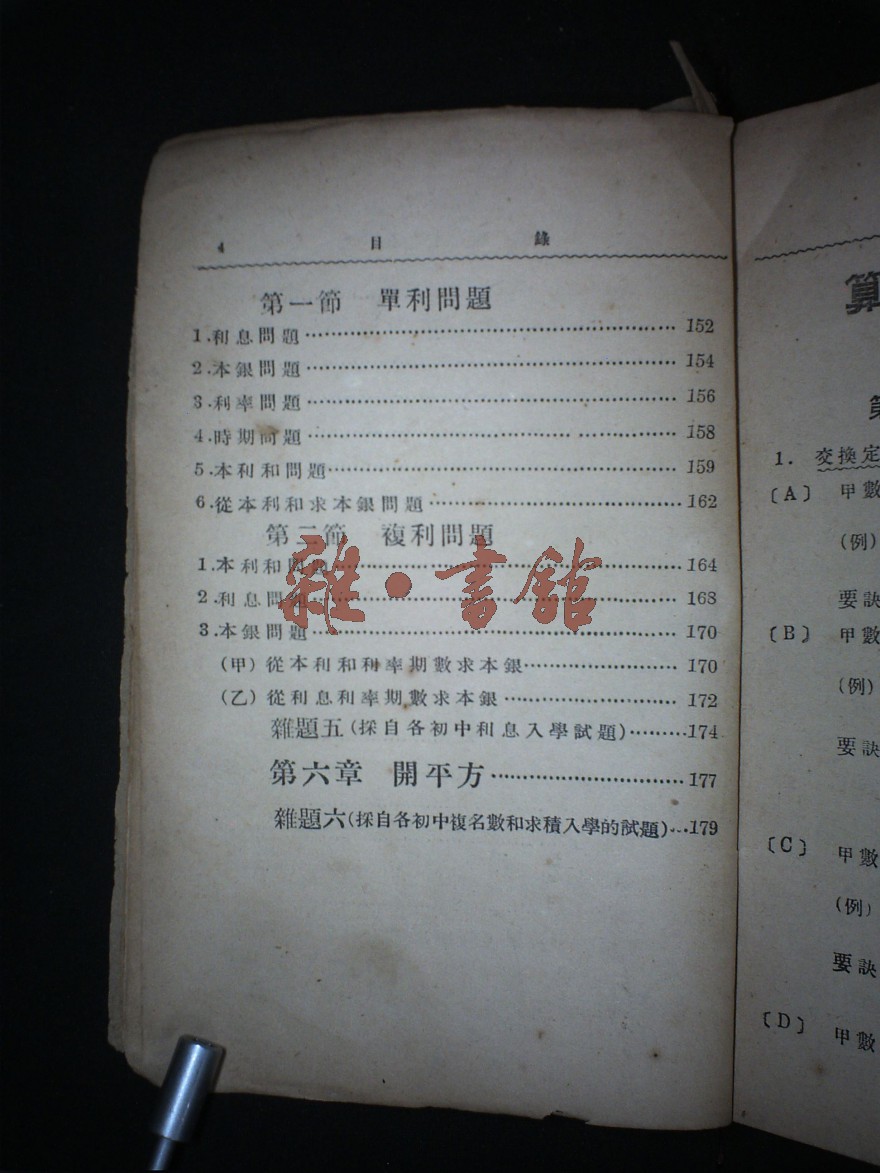 4 目 錄
第一節 單利問題
1.利息問題 152
2.本銀問題 154
3.利率問題 156
4.時期問題 158
5.本利和問題 159
6.從本利和求本銀問題 162
第二節 複利問題
1.本利和問題 164
2.利息問題 168
3.本銀問題 170
(甲)從本利和利率期數求本銀 170
(乙)從利息利率期數求本銀 172
雜題五(採自各初中利息入學試題) 174
第六章 開平方 177
雜題六(採自各初中複名數和求積入學的試題) 179
雜·書館
算
1. 交換定
〔A〕 甲數
(例)
要訣
〔B〕 甲數
(例)
要訣
〔C〕 甲數
(例)
要訣
〔D〕 甲數